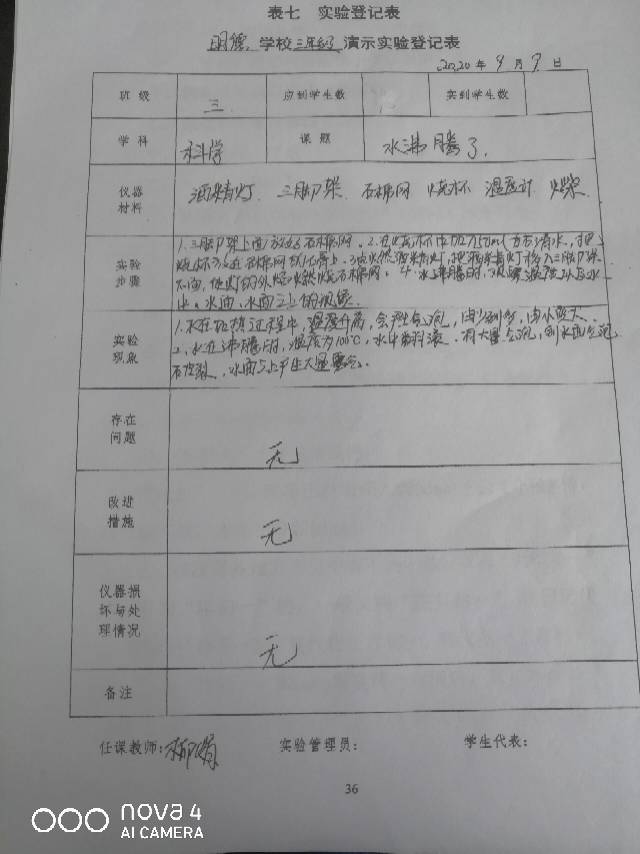 表七 实验登记表
明德 学校 三年级 演示实验登记表
2020 年 9 月 7 日
班级 三 应到学生数 实到学生数
学科 科学 课题 水沸腾了.
仪器材料 酒精灯. 三脚架. 石棉网 烧杯 温度计. 火柴.
实验步骤 1.三脚架上面放石棉网. 2.在烧杯中加入150ml左右清水, 把
烧杯放在石棉网的上. 3.点燃酒精灯, 把酒精灯移入三脚架
下面, 使灯的外焰 石棉网. 4.水沸腾时, 观察温度以及水
中. 水面. 水面之上的现象.
实验现象 1.水在加热过程中, 温度升高, 会产生气泡, 由少到多, 由小变大.
2.水在沸腾时, 温度为100℃, 水中 有大量气泡, 到水面气泡
破裂. 水面之上产生大量
存在问题 无
改进措施 无
仪器损坏与处理情况 无
备注
任课教师: 柳娟 实验管理员: 学生代表:
36
nova 4
AI CAMERA